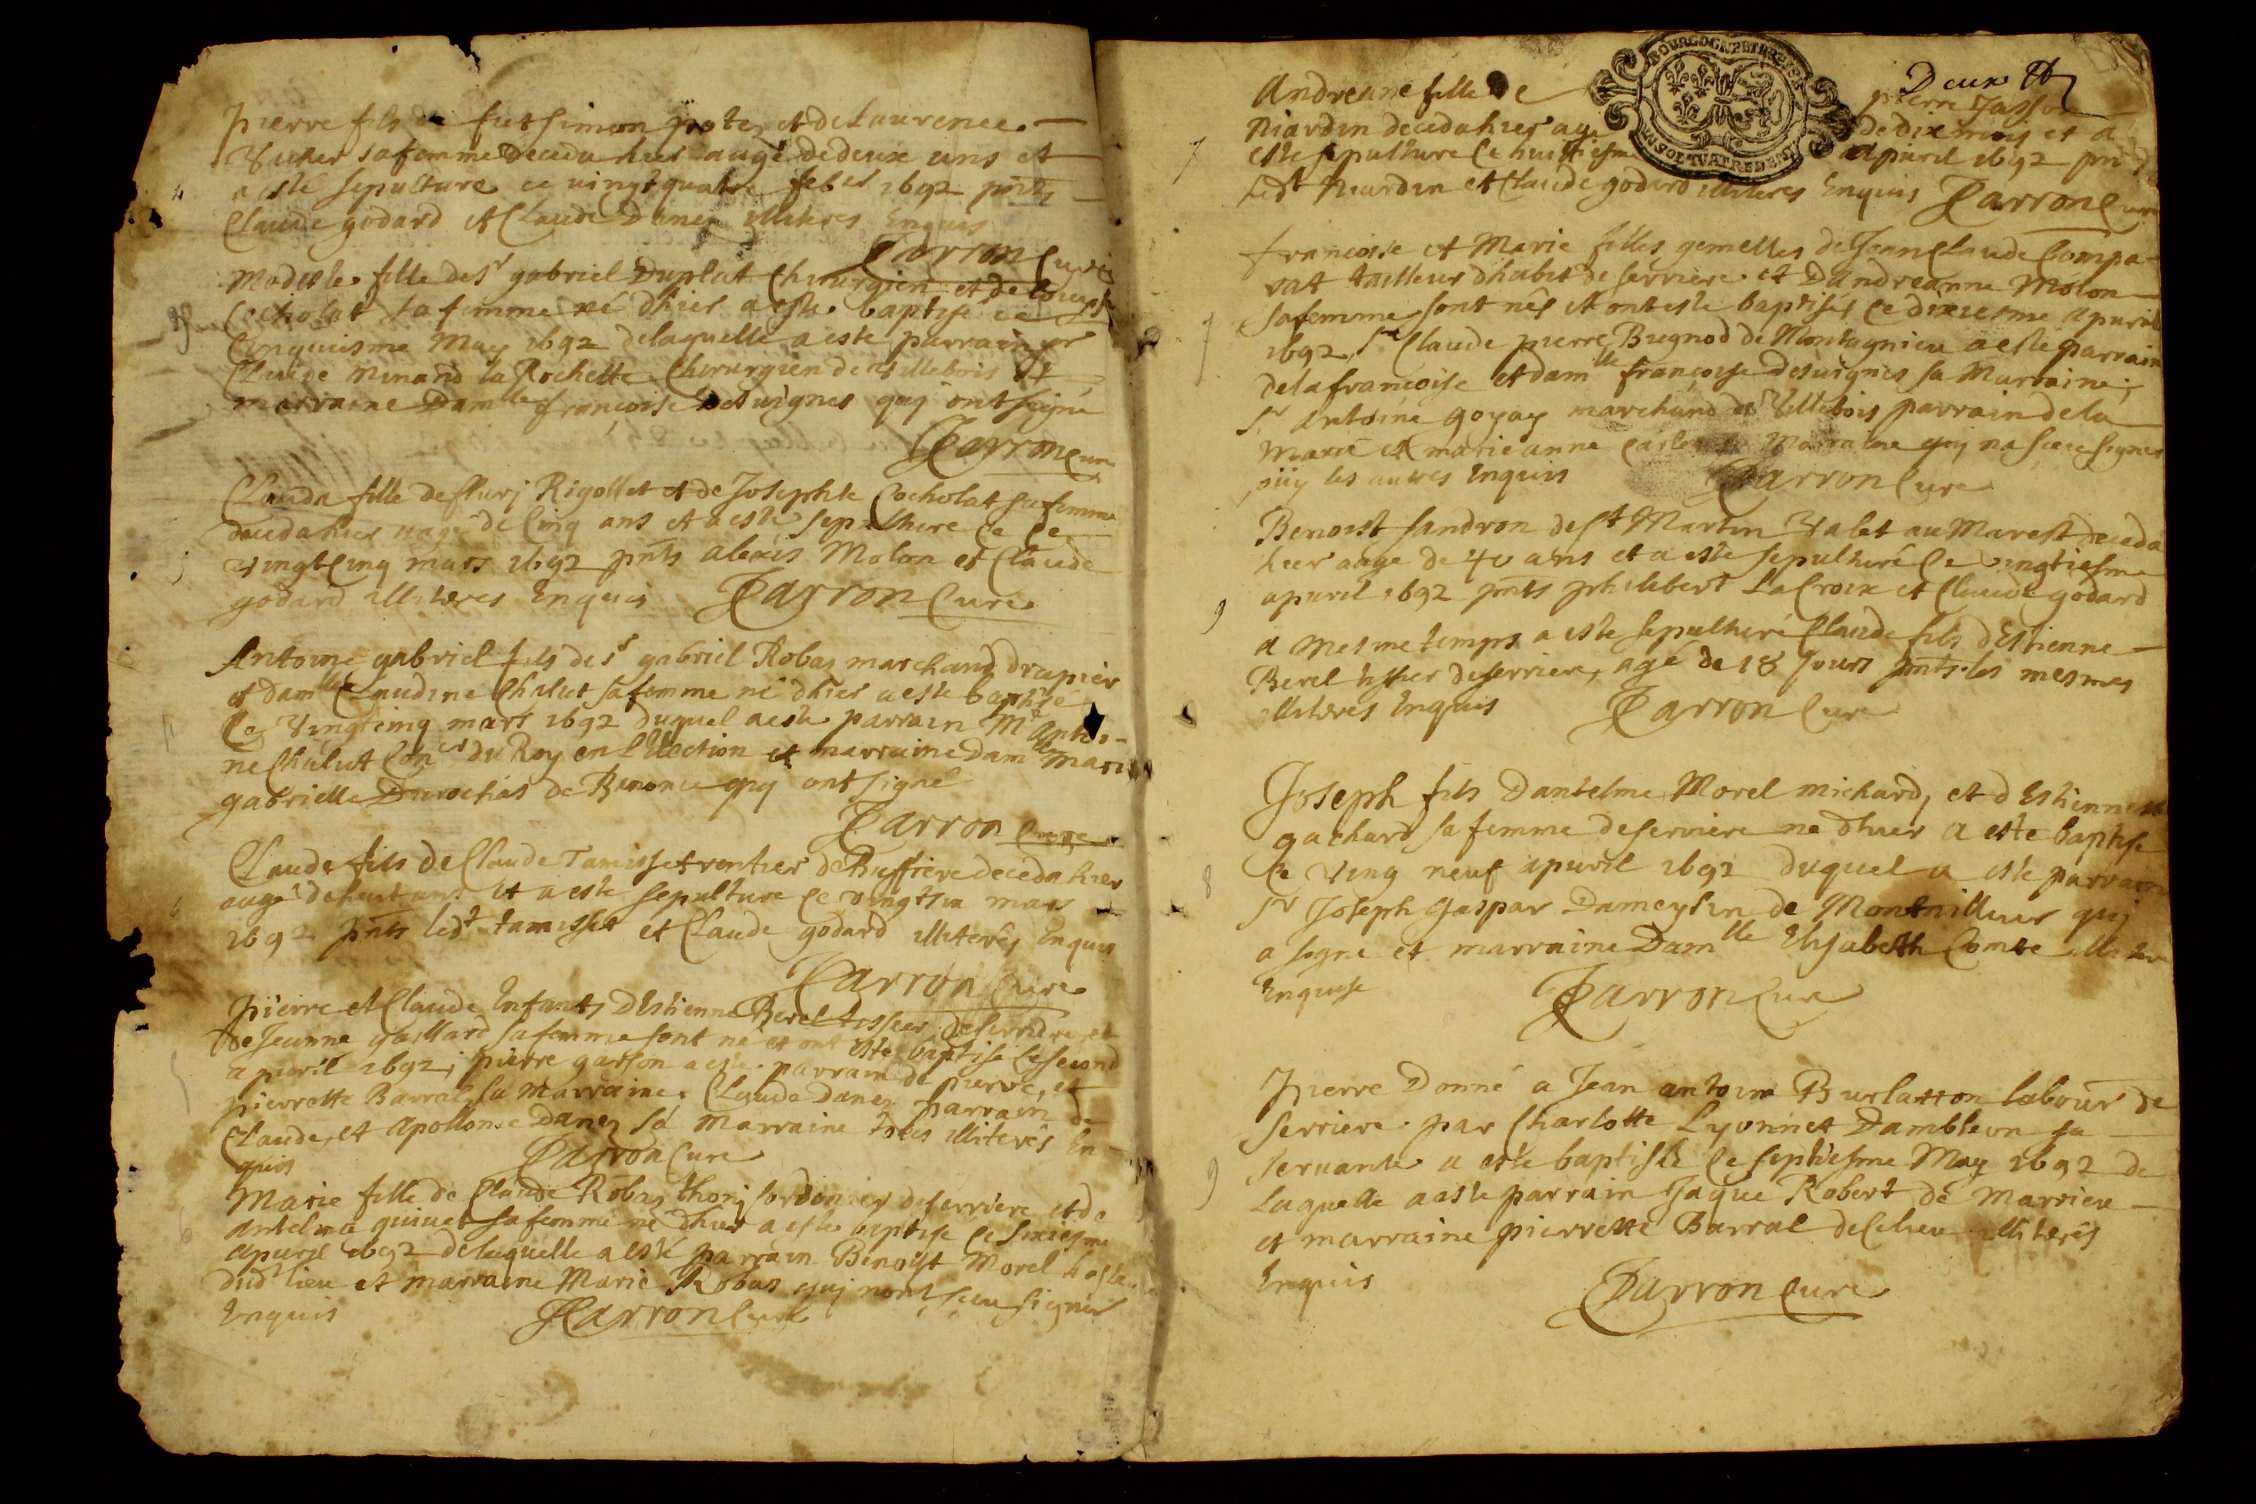 pierre fils de fut simon et de Laurence
sa femme deceda hier augé de deux ans et
a esté sepulturé ce vingt quatre feb 1692 pnts
Claude godard et Claude Danez illiteres Enquis
Parron Curé
Modeste fille de Sr gabriel Duplat Chirurgien et de
Cocholat sa femme né dhier a esté baptisé ce
Cinquiesme May 1692 de laquelle a esté parrain Sr
Claude Minand la Rochette Chirurgien de Villebois et
marraine Damlle françoise Desvignes quj ont signé
Parron Curé
Clauda fille de fleurj Rigollet et de Josephte Cocholat sa femme
deceda hier augé de Cinq ans et a esté sepulturé Ce Ce
vingt Cinq mars 1692 pnts alexis Molon et Claude
godard illiteres Enquis Parron Curé
Antoine gabriel fils de Sr gabriel Robaz marchand drapier
et damlle Claudine Chalut sa femme né dhier a esté baptisé
Ce Vingt cinq mars 1692 duquel a esté parrain Mr Antoi-
ne Chalut Coner du Roy en Ellection et marraine Damlle Marie
gabrielle Durochas de quj ont signé
Parron Curé
Claude fils de Claude Tamisset rentier de Buffiere deceda hier
augé de huit ans et a esté sepulture ce vingt six mars
1692 pnts ledt tamisset et Claude godard illiterés Enquis
Parron Curé
pierre et Claude Enfants dEstienne Berel tissier de serriere et
de Jeanne gaillard sa femme sont né et ont esté baptisé Ce second
apuril 1692, pierre garson a esté parrain de pierre, et
pierrette Barral sa Marraine. Claude Danez parrain de
Claude, et apollonie Danez sa marraine tous illiterés En-
quis Parron Curé
Marie fille de Claude Robaz thonj Cordonier de serriere et de
antelma quinet sa femme né dhier a esté baptisé Ce sixiesme
apuril 1692 de laquelle a esté parrain Benoist Morel hoste
dud lieu et marraine Marie Robaz quj nont sceu signer
Enquis Parron Curé
Deux
Andreane fille de pierre
Niardin deceda hier agé de dix mois et a
esté sepulture Ce huictiesme apuril 1692 pnt
Ledt Niardin et Claude godard illiteres Enquis Parron Curé
françoise et Marie filles gemelles de Jean Claude Compa-
rat tailleur dhabit de serriere et dAndreanne Molon
sa femme sont nés et ont esté baptisés Ce dixiesme apuril
1692, Sr Claude pierre Bugnod de Montagnieu a esté parrain
de la françoise et damlle françoise Desvignes sa Marraine;
Sr Antoine goyay marchand de Villebois parrain de la
Marie et marie anne Marraine quj na sceu signer
ouy les autres Enquis Parron Curé
Benoist sandron de St Martin Valet au Marest deceda
hier augé de 40 ans et a esté sepulturé Ce vingtiesme
apuril 1692 pnts philibert LaCroix et Claude godard
a mesme temps a esté sepulturé Claude fils dEstienne
Berel tissier de serriere, agé de 18 Jours pnts les mesmes
illiterés Enquis Parron Curé
Joseph fils Dantelme Morel michard, et dEstiennette
gachard sa femme de serriere né dhier a esté baptisé
Ce Ving neuf apuril 1692 duquel a esté parrain
Sr Joseph gaspar Dameysin de Montvilleur quj
a signé et marraine Damlle Elisabeth Comte illitere
Enquise Parron Curé
pierre Donné a Jean antoine Burlatton labour de
serriere par Charlotte Lyonnet Dambleon sa
servante a esté baptisé Ce septiesme May 1692 de
laquelle a esté parrain Jaque Robert de Marrieu
et marraine pierrette Barral de Ce lieu illiterés
Enquis Parron Curé